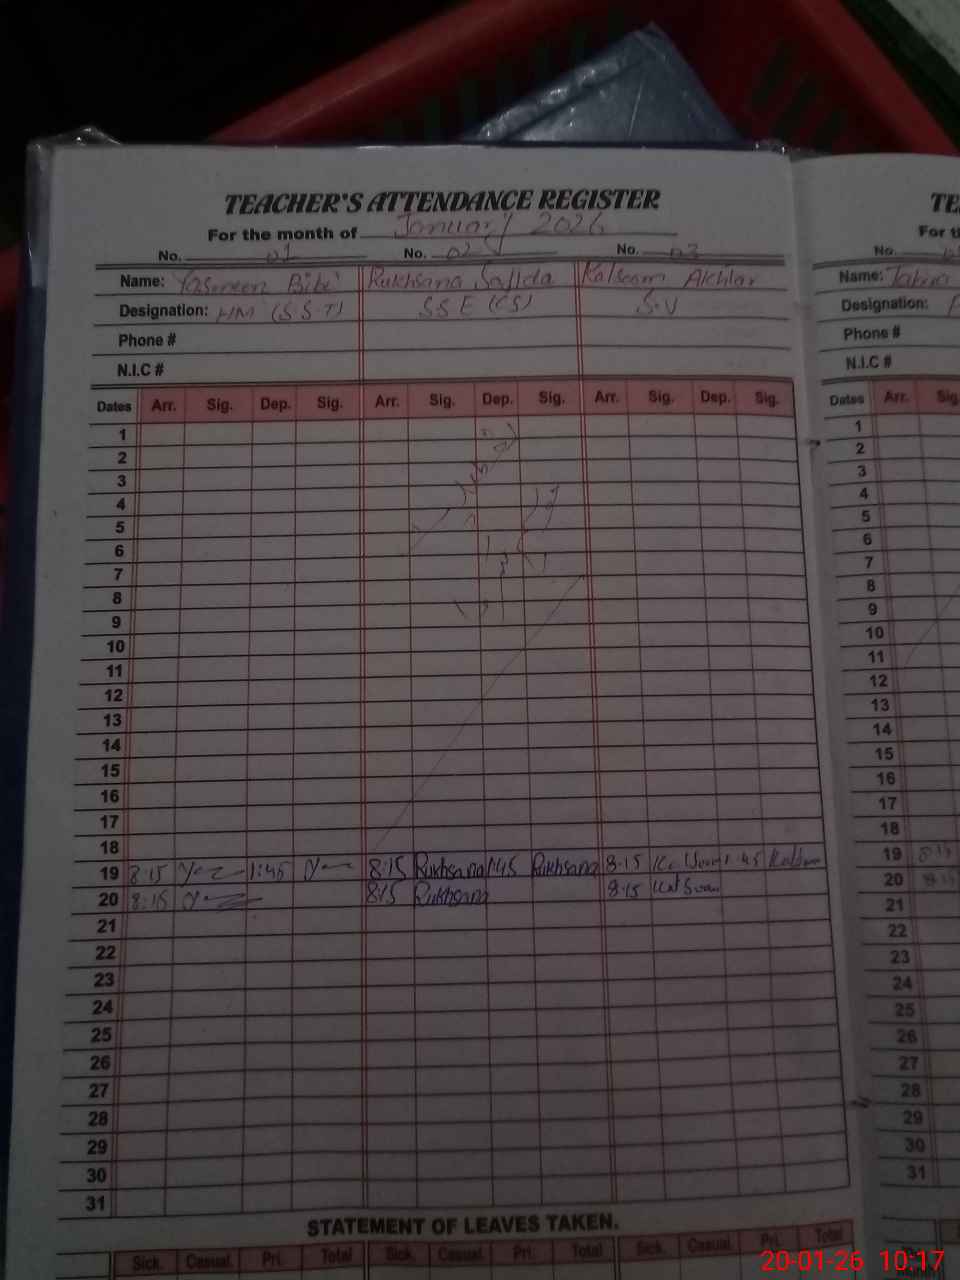 TEACHER'S ATTENDANCE REGISTER
For the month of January 2026
No. 01 No. 02 No. 03
Name: Yasmeen Bibi Rukhsana Sajida Kalsoom Akhtar
Designation: HM (S.S.T) SSE (CS) S.V
Phone #
N.I.C #
Dates Arr. Sig. Dep. Sig. Arr. Sig. Dep. Sig. Arr. Sig. Dep. Sig.
1
2
3
4
5
6
7
8
9
10
11
12
13
14
15
16
17
18
19 8:15 1:45 8:15 Rukhsana 1:45 Rukhsana 8:15 Kalsoom 1:45 Kalsoom
20 8:15 8:15 Rukhsana 8:15 Kalsoom
21
22
23
24
25
26
27
28
29
30
31
STATEMENT OF LEAVES TAKEN.
Sick. Casual. Pri. Total Sick. Casual. Pri. Total Sick. Casual. Pri. Total
TE
For t
No.
Name: Tahira
Designation:
Phone #
N.I.C #
Dates Arr. Sig
1
2
3
4
5
6
7
8
9
10
11
12
13
14
15
16
17
18
19 8:15
20 8:15
21
22
23
24
25
26
27
28
29
30
31
20-01-26 10:17